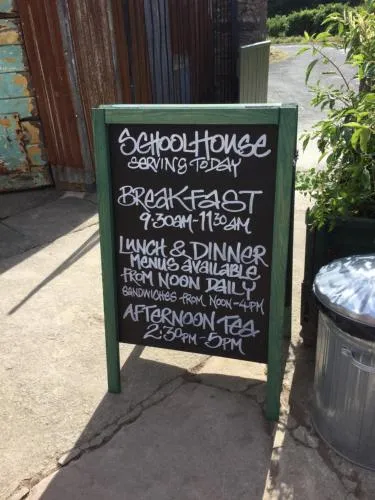 SCHOOLHOUSE
SERVING TODAY
BREAKFAST
9:30AM-11:30AM
LUNCH & DINNER
MENUS AVAILABLE
FROM NOON DAILY
SANDWICHES FROM NOON-4PM
AFTERNOON TEA
2:30PM-5PM